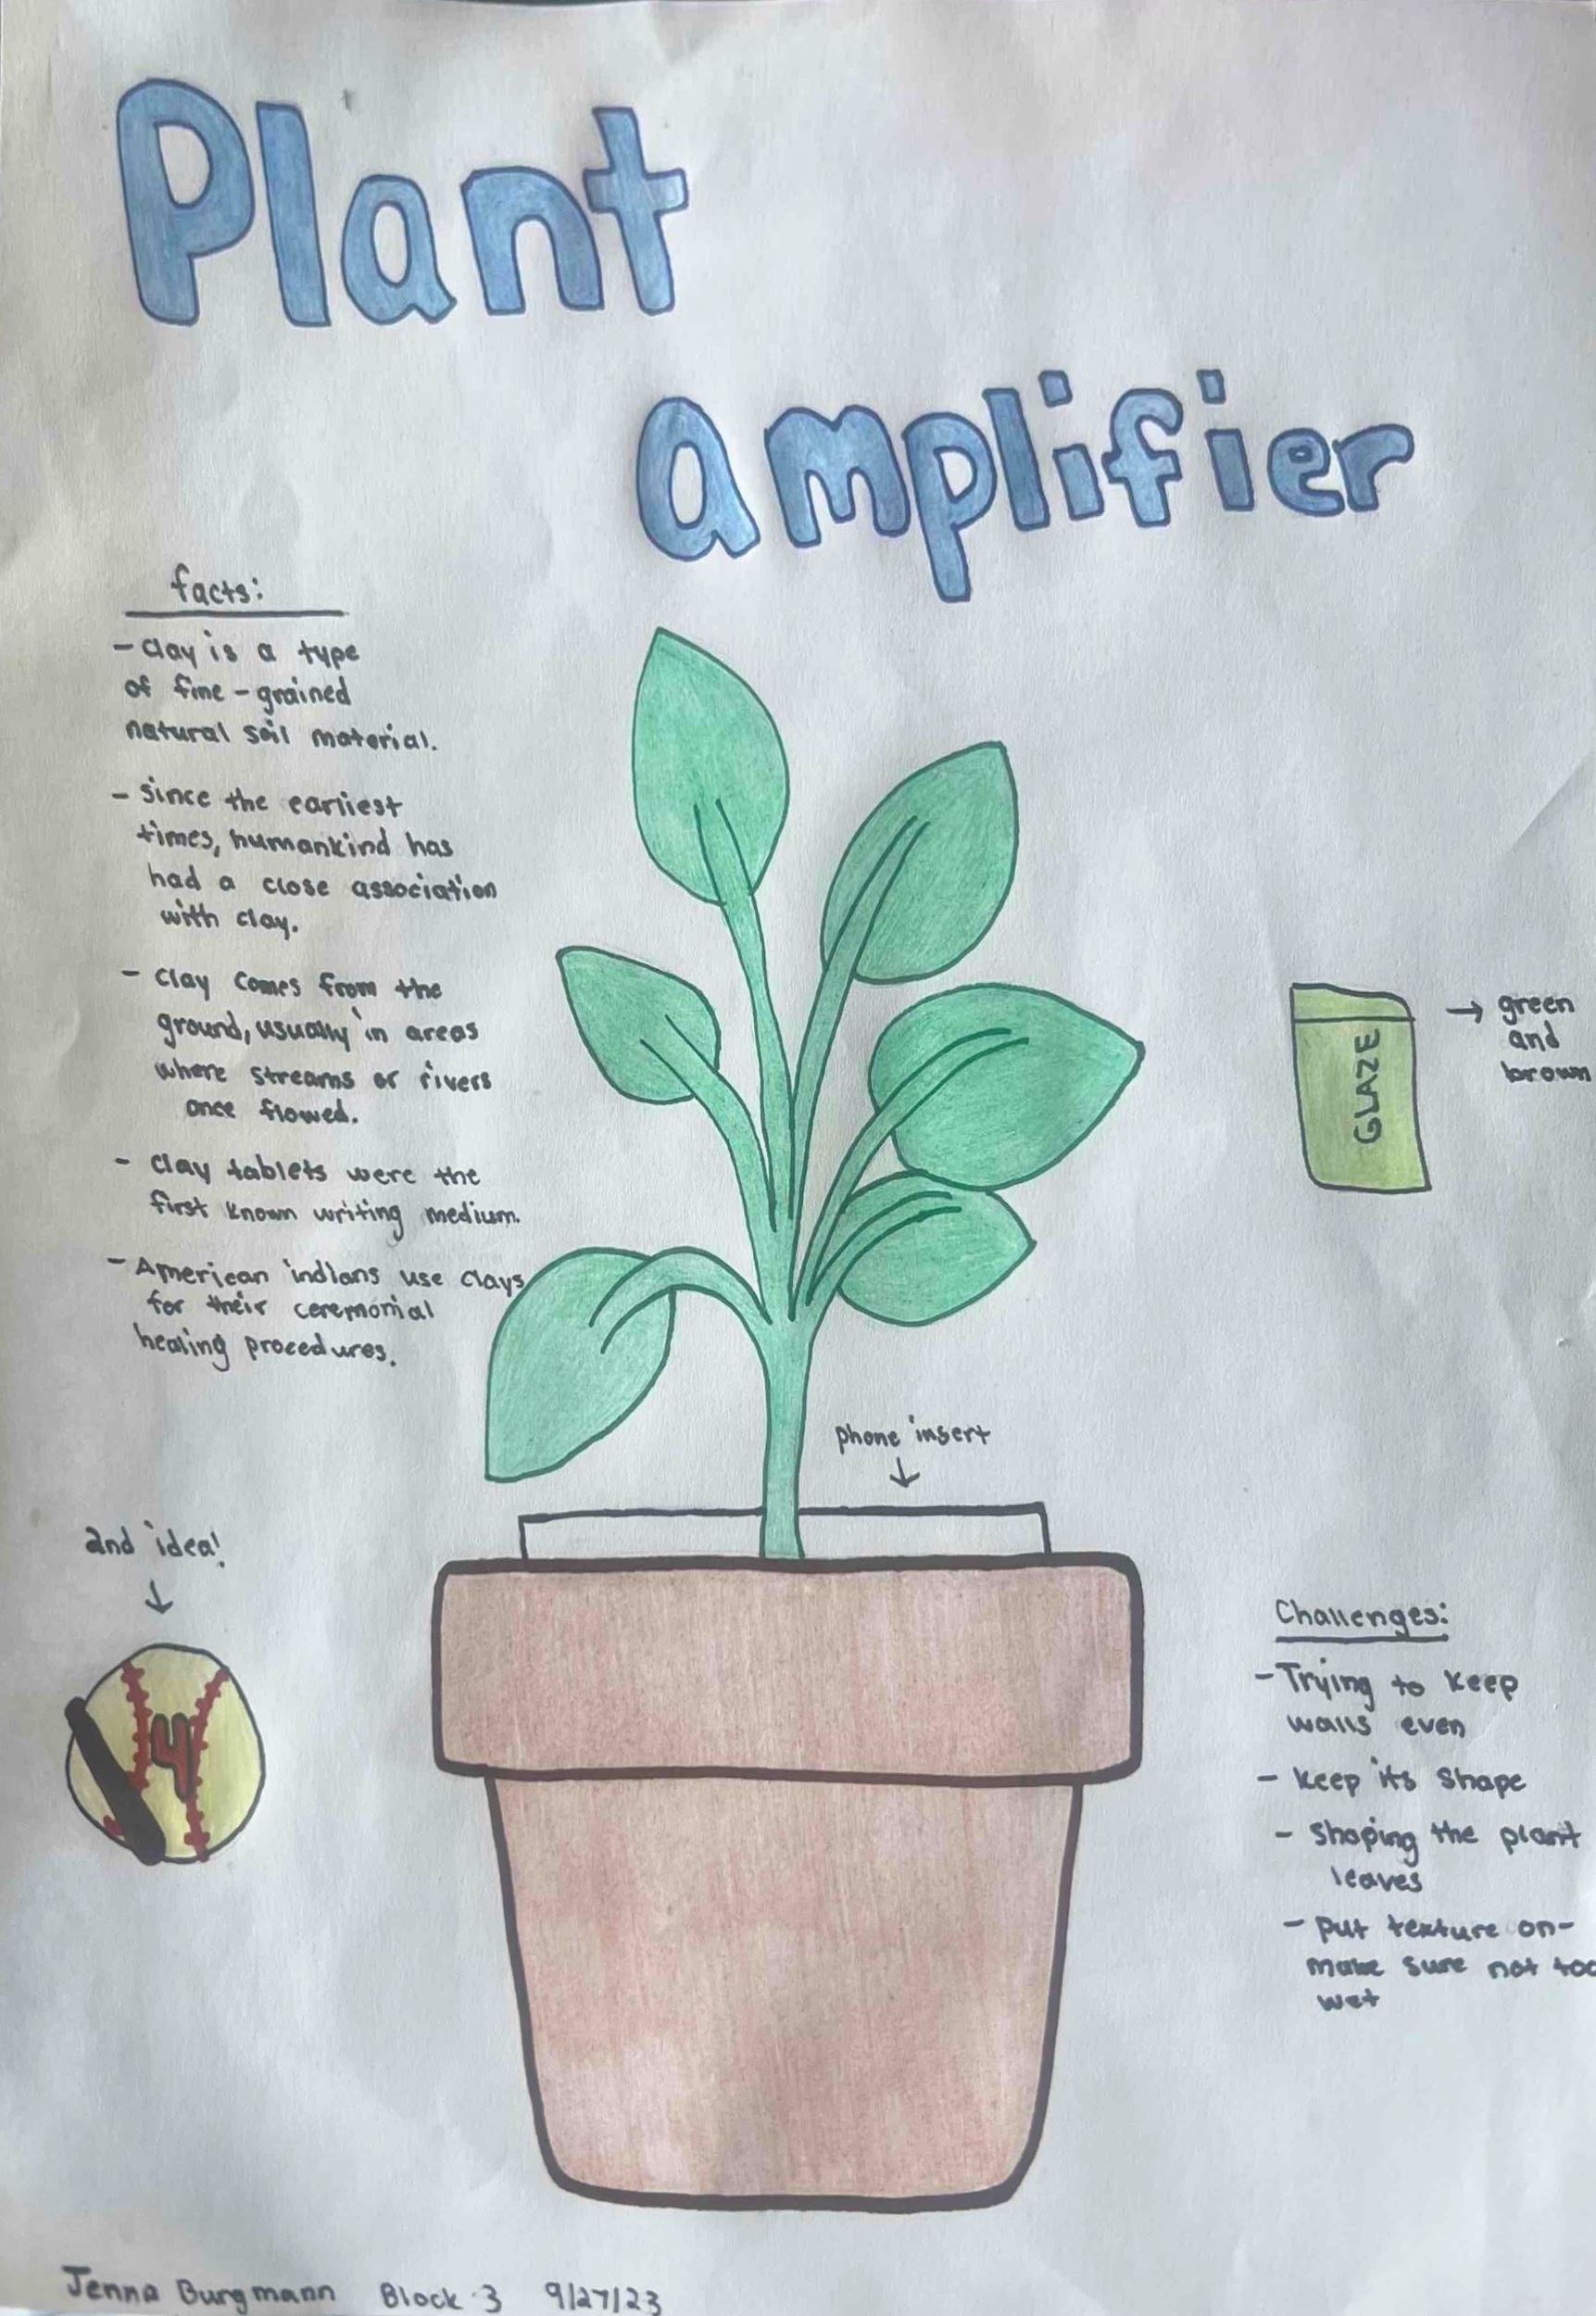 Plant
amplifier
facts:
- Clay is a type
of fine-grained
natural soil material.
- Since the earliest
times, humankind has
had a close association
with clay.
- Clay comes from the
ground, usually in areas
where streams or rivers
once flowed.
- Clay tablets were the
first known writing medium.
- American indians use clays
for their ceremonial
healing procedures.
GLAZE
→ green
and
brown
phone insert
2nd idea!
4
Challenges:
- Trying to keep
walls even
- Keep its shape
- Shaping the plant
leaves
- put texture on-
make sure not too
wet
Jenna Burgmann Block 3 9/27/23